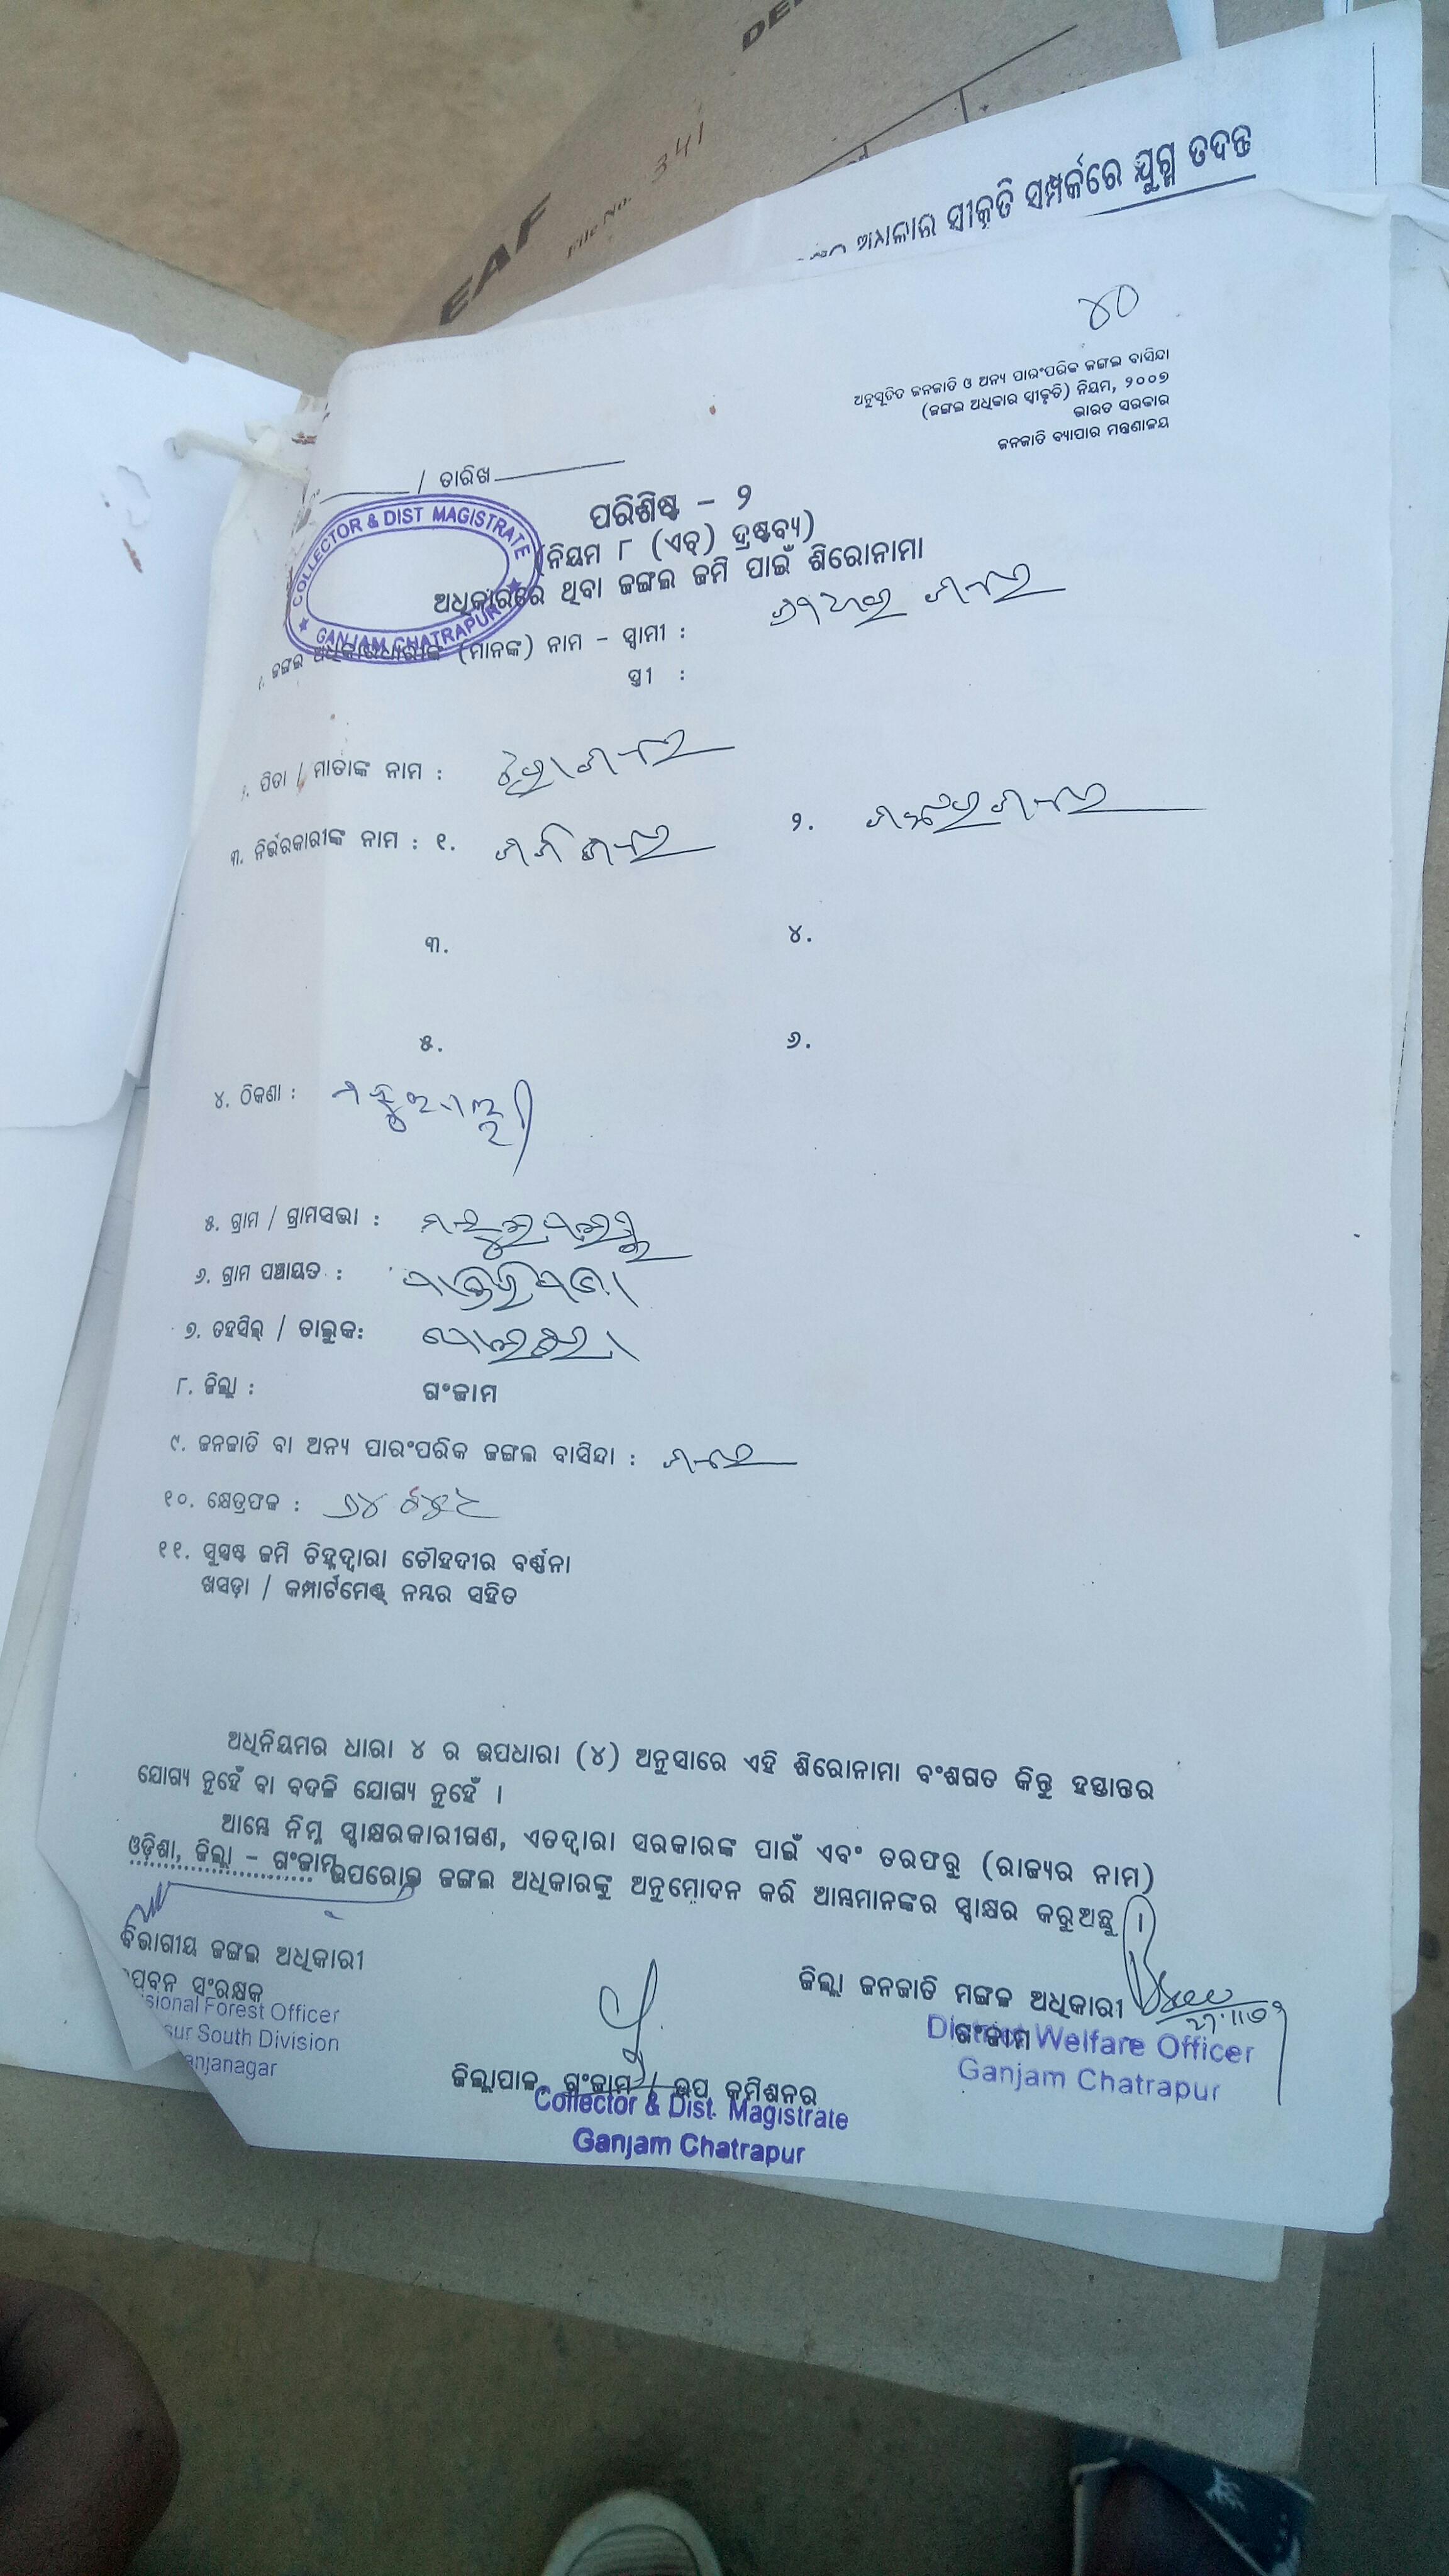 DE
EAF
File No. 341
ସ୍ୱୀକୃତି ସମ୍ପର୍କରେ ଯୁଗ୍ମ ତଦନ୍ତ
୪୦
ଅନୁସୂଚିତ ଜନଜାତି ଓ ଅନ୍ୟ ପାରଂପରିକ ଜଙ୍ଗଲ ବାସିନ୍ଦା
(ଜଙ୍ଗଲ ଅଧିକାର ସ୍ୱୀକୃତି) ନିୟମ, ୨୦୦୭
ଭାରତ ସରକାର
ଜନଜାତି ବ୍ୟାପାର ମନ୍ତ୍ରଣାଳୟ
/ ତାରିଖ
COLLECTOR & DIST MAGISTRATE
GANJAM CHATRAPUR
ପରିଶିଷ୍ଟ - ୨
(ନିୟମ ୮ (ଏଚ୍) ଦ୍ରଷ୍ଟବ୍ୟ)
ଅଧିକାରରେ ଥିବା ଜଙ୍ଗଲ ଜମି ପାଇଁ ଶିରୋନାମା
ଜଙ୍ଗଲ ଅଧିକାରଧାରୀଙ୍କ (ମାନଙ୍କ) ନାମ - ସ୍ୱାମୀ :
ସ୍ତ୍ରୀ :
ପିତା / ମାତାଙ୍କ ନାମ :
୩. ନିର୍ଭରକାରୀଙ୍କ ନାମ : ୧. ୨.
୩. ୪.
୫. ୬.
୪. ଠିକଣା :
୫. ଗ୍ରାମ / ଗ୍ରାମସଭା :
୬. ଗ୍ରାମ ପଞ୍ଚାୟତ :
୭. ତହସିଲ୍ / ତାଲୁକ:
୮. ଜିଲ୍ଲା : ଗଂଜାମ
୯. ଜନଜାତି ବା ଅନ୍ୟ ପାରଂପରିକ ଜଙ୍ଗଲ ବାସିନ୍ଦା :
୧୦. କ୍ଷେତ୍ରଫଳ :
୧୧. ସୁସ୍ପଷ୍ଟ ଜମି ଚିହ୍ନଦ୍ୱାରା ଚୌହଦୀର ବର୍ଣ୍ଣନା
ଖସଡ଼ା / କମ୍ପାର୍ଟମେଣ୍ଟ୍ ନମ୍ବର ସହିତ
ଅଧିନିୟମର ଧାରା ୪ ର ଉପଧାରା (୪) ଅନୁସାରେ ଏହି ଶିରୋନାମା ବଂଶଗତ କିନ୍ତୁ ହସ୍ତାନ୍ତର
ଯୋଗ୍ୟ ନୁହେଁ ବା ବଦଳି ଯୋଗ୍ୟ ନୁହେଁ ।
ଆମ୍ଭେ ନିମ୍ନ ସ୍ୱାକ୍ଷରକାରୀଗଣ, ଏତଦ୍ୱାରା ସରକାରଙ୍କ ପାଇଁ ଏବଂ ତରଫରୁ (ରାଜ୍ୟର ନାମ)
ଓଡ଼ିଶା, ଜିଲ୍ଲା - ଗଂଜାମ ଉପରୋକ୍ତ ଜଙ୍ଗଲ ଅଧିକାରଙ୍କୁ ଅନୁମୋଦନ କରି ଆମ୍ଭମାନଙ୍କର ସ୍ୱାକ୍ଷର କରୁଅଛୁ ।
ବିଭାଗୀୟ ଜଙ୍ଗଲ ଅଧିକାରୀ
ସଂରକ୍ଷକ
isional Forest Officer
sur South Division
anjanagar
ଜିଲ୍ଲା ଜନଜାତି ମଙ୍ଗଳ ଅଧିକାରୀ
ଗଂଜାମ
District Welfare Officer
Ganjam Chatrapur
ଜିଲ୍ଲାପାଳ, ଗଂଜାମ / ଉପ କମିଶନର
Collector & Dist. Magistrate
Ganjam Chatrapur